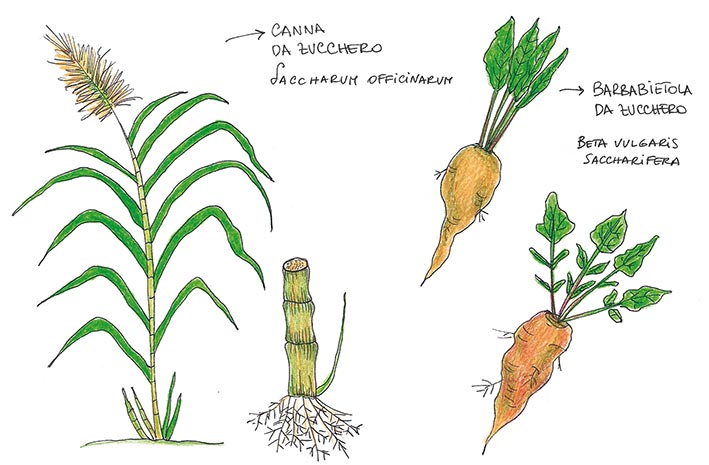 CANNA
DA ZUCCHERO
SACCHARUM OFFICINARUM
BARBABIETOLA
DA ZUCCHERO
BETA VULGARIS
SACCHARIFERA